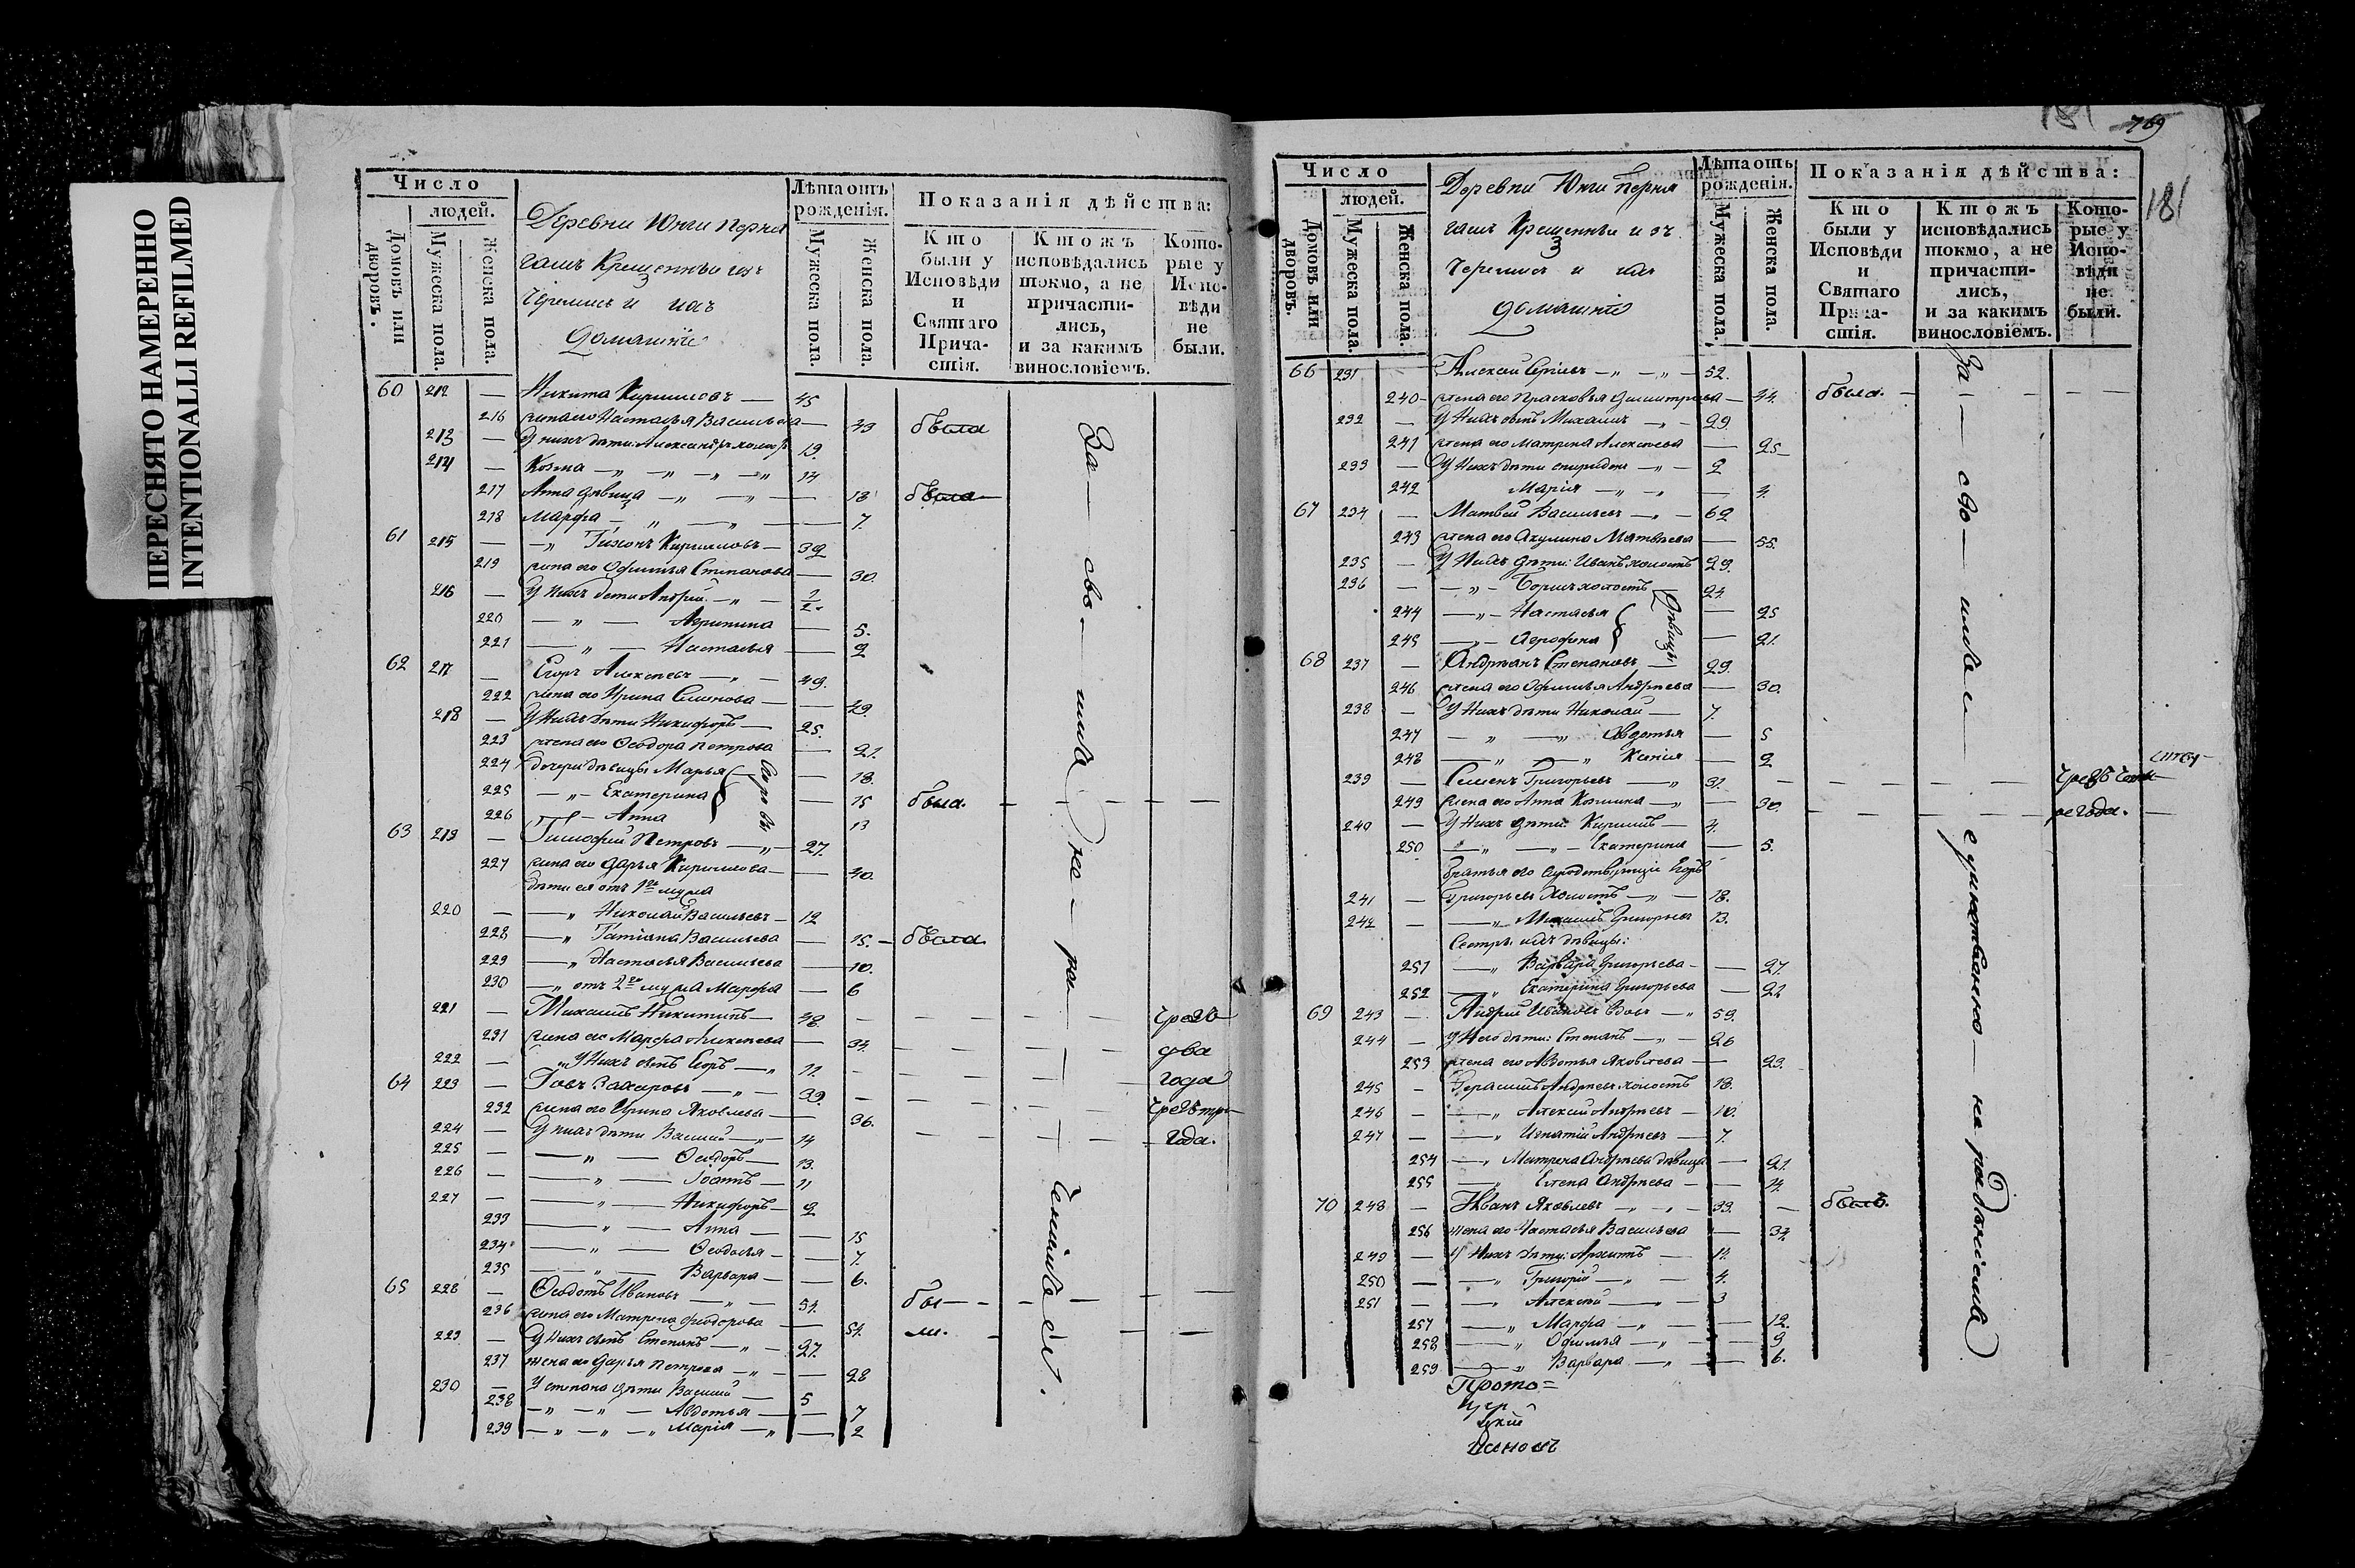 ПЕРЕСНЯТО НАМЕРЕННО
INTENTIONALLI REFILMED
Число
людей.
Домовъ или дворовъ.
Мужеска пола.
Женска пола.
Деревни Юнги Перня
гашъ Крещенныи изъ
Черемисъ и ихъ
домашніе
Лѣта отъ рожденія.
Мужеска пола.
Женска пола.
Показанія дѣйства:
Кто были у Исповѣди и Святаго Прича-стія.
Ктожъ исповѣдались токмо, а не причасти-лись, и за какимъ винословіемъ.
Кото-рые у Испо-вѣди не были.
60 212 — Никита Кирилловъ — 45
216 жена его Настасья Васильева — 43 была
213 — У нихъ дѣти: Александръ холостъ 19.
214 — Козма — 14
217 Анна дѣвица — 18 была
218 Марфа — 7.
61 215 — Тихонъ Кирилловъ — 32
219 жена его Офимья Степанова — 30.
216 — У нихъ дети Андрей — 1/2.
220 — Агрипина — 5.
221 — Настасья — 2
62 217 — Егоръ Алексѣевъ — 49.
222 жена его Ирина Семенова — 49.
218 — У Нихъ дѣти Никифоръ — 25.
223 жена его Ѳеодора Петрова — 21.
224 дочери дѣвицы Марья — 18.
225 — Екатерина — 15 была. — — —
226 — Анна 13
63 219 — Тимофей Петровъ — 27.
227 жена его Дарья Кириллова — 40.
дѣти ея отъ 1го мужа
220 — Николай Васильевъ — 12
228 — Татіана Васильева — 15. — была
229 — Настасья Васильева — 10.
230 — отъ 2го мужа Марфа — 6
221 — Михаилъ Никитинъ — 48. — — — чрезъ
231 жена его Марфа Алексѣева — 34. — — — два
222 — У Нихъ сынъ Егоръ — 11. — — — года
64 223 — Іовъ Захаровъ — 39. — — — чрезъ три
232 жена его Ирина Яковлева — 36. — — — года.
224 — У нихъ дѣти Василій — 14
225 — Ѳеодоръ — 13.
226 — Іоаннъ — 11
227 — Никифоръ — 2
233 — Анна — 15
234 — Ѳеодосья — 7.
235 — Варвара — 6.
65 228 — Ѳеодотъ Ивановъ — 54. бы — —
236 жена его Матрена Ѳеодорова — 54. ли. — —
229 — У Нихъ сынъ Степанъ — 27.
237 жена его Дарья Петрова — 28
230 — У степана дѣти Василій — 5
238 — Авдотья — 7
239 — Марія — 2
769
181
181
Число
людей.
Домовъ или дворовъ.
Мужеска пола.
Женска пола.
Деревни Юнги Перня
гашъ Крещенныи изъ
Черемисъ и ихъ
домашніе
Лѣта отъ рожденія.
Мужеска пола.
Женска пола.
Показанія дѣйства:
Кто были у Исповѣди и Святаго Прича-стія.
Ктожъ исповѣдались токмо, а не причасти-лись, и за какимъ винословіемъ.
Кото-рые у Испо-вѣди не были.
66 231 Алексѣй Сергѣевъ — 52.
240 — жена его Прасковья Димитриева — 44. была. — — —
232 — У Нихъ сынъ Михаилъ — 29.
241 жена его Матрена Алексѣева — 25
233 — У Нихъ дѣти спиридонъ — 2
242 Марія — 4.
67 234 — Матвей Васильевъ — 62
243 жена его Акулина Матвѣева — 55.
235 — У Нихъ дѣти: Иванъ холостъ 29.
236 — Борисъ холостъ 24.
244 — Настасья дѣвицы — 25
245 — Агрофена — 21.
68 237 — Андреанъ Степановъ — 29.
246 жена его Офимья Андреева — 30.
238 — У Нихъ дѣти Николай — 7.
247 — Авдотья — 5
248 — Ксенія — 2
239 — Семенъ Григорьевъ — 31. — — — чрезъ четы
249 жена его Анна Козмина — 30. — — — ре года. —
240 — У Нихъ дѣти Кириллъ — 4.
250 — Екатерина — 5.
братья его Егоръ
241 — Григорьевъ Холостъ — 18.
242 — Михаилъ Григорьевъ 13.
Сестры ихъ дѣвицы:
251 — Варвара Григорьева — 27.
252 — Екатерина Григорьева — 22
69 243 — Андрей Ивановъ вдовъ — 59.
244 — У Него дѣти: Степанъ — 26
253 жена его Авдотья Яковлева — 23.
245 — Герасимъ Андреевъ холостъ 18.
246 — Алексѣй Андреевъ — 10.
247 — Игнатій Андреевъ — 7.
254 — Матрена Андреева дѣвица — 21.
255 — Елена Андреева — 14.
70 248 — Иванъ Яковлевъ — 33. — былъ.
256 жена его Настасья Васильева — 34.
249 — У Нихъ дѣти: Архипъ — 11.
250 — Григорій — 4.
251 — Алексѣй — 3
257 — Марфа — 12.
258 — Офимья — 9
259 — Варвара — 6.
Прото=